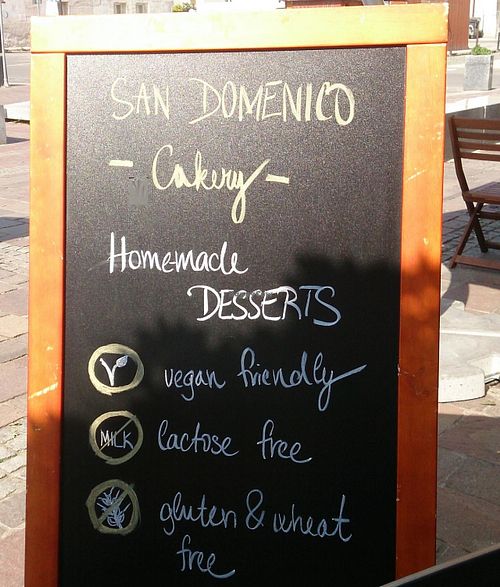 SAN DOMENICO
- Cakery -
Homemade
DESSERTS
V vegan friendly
MILK lactose free
gluten & wheat
free